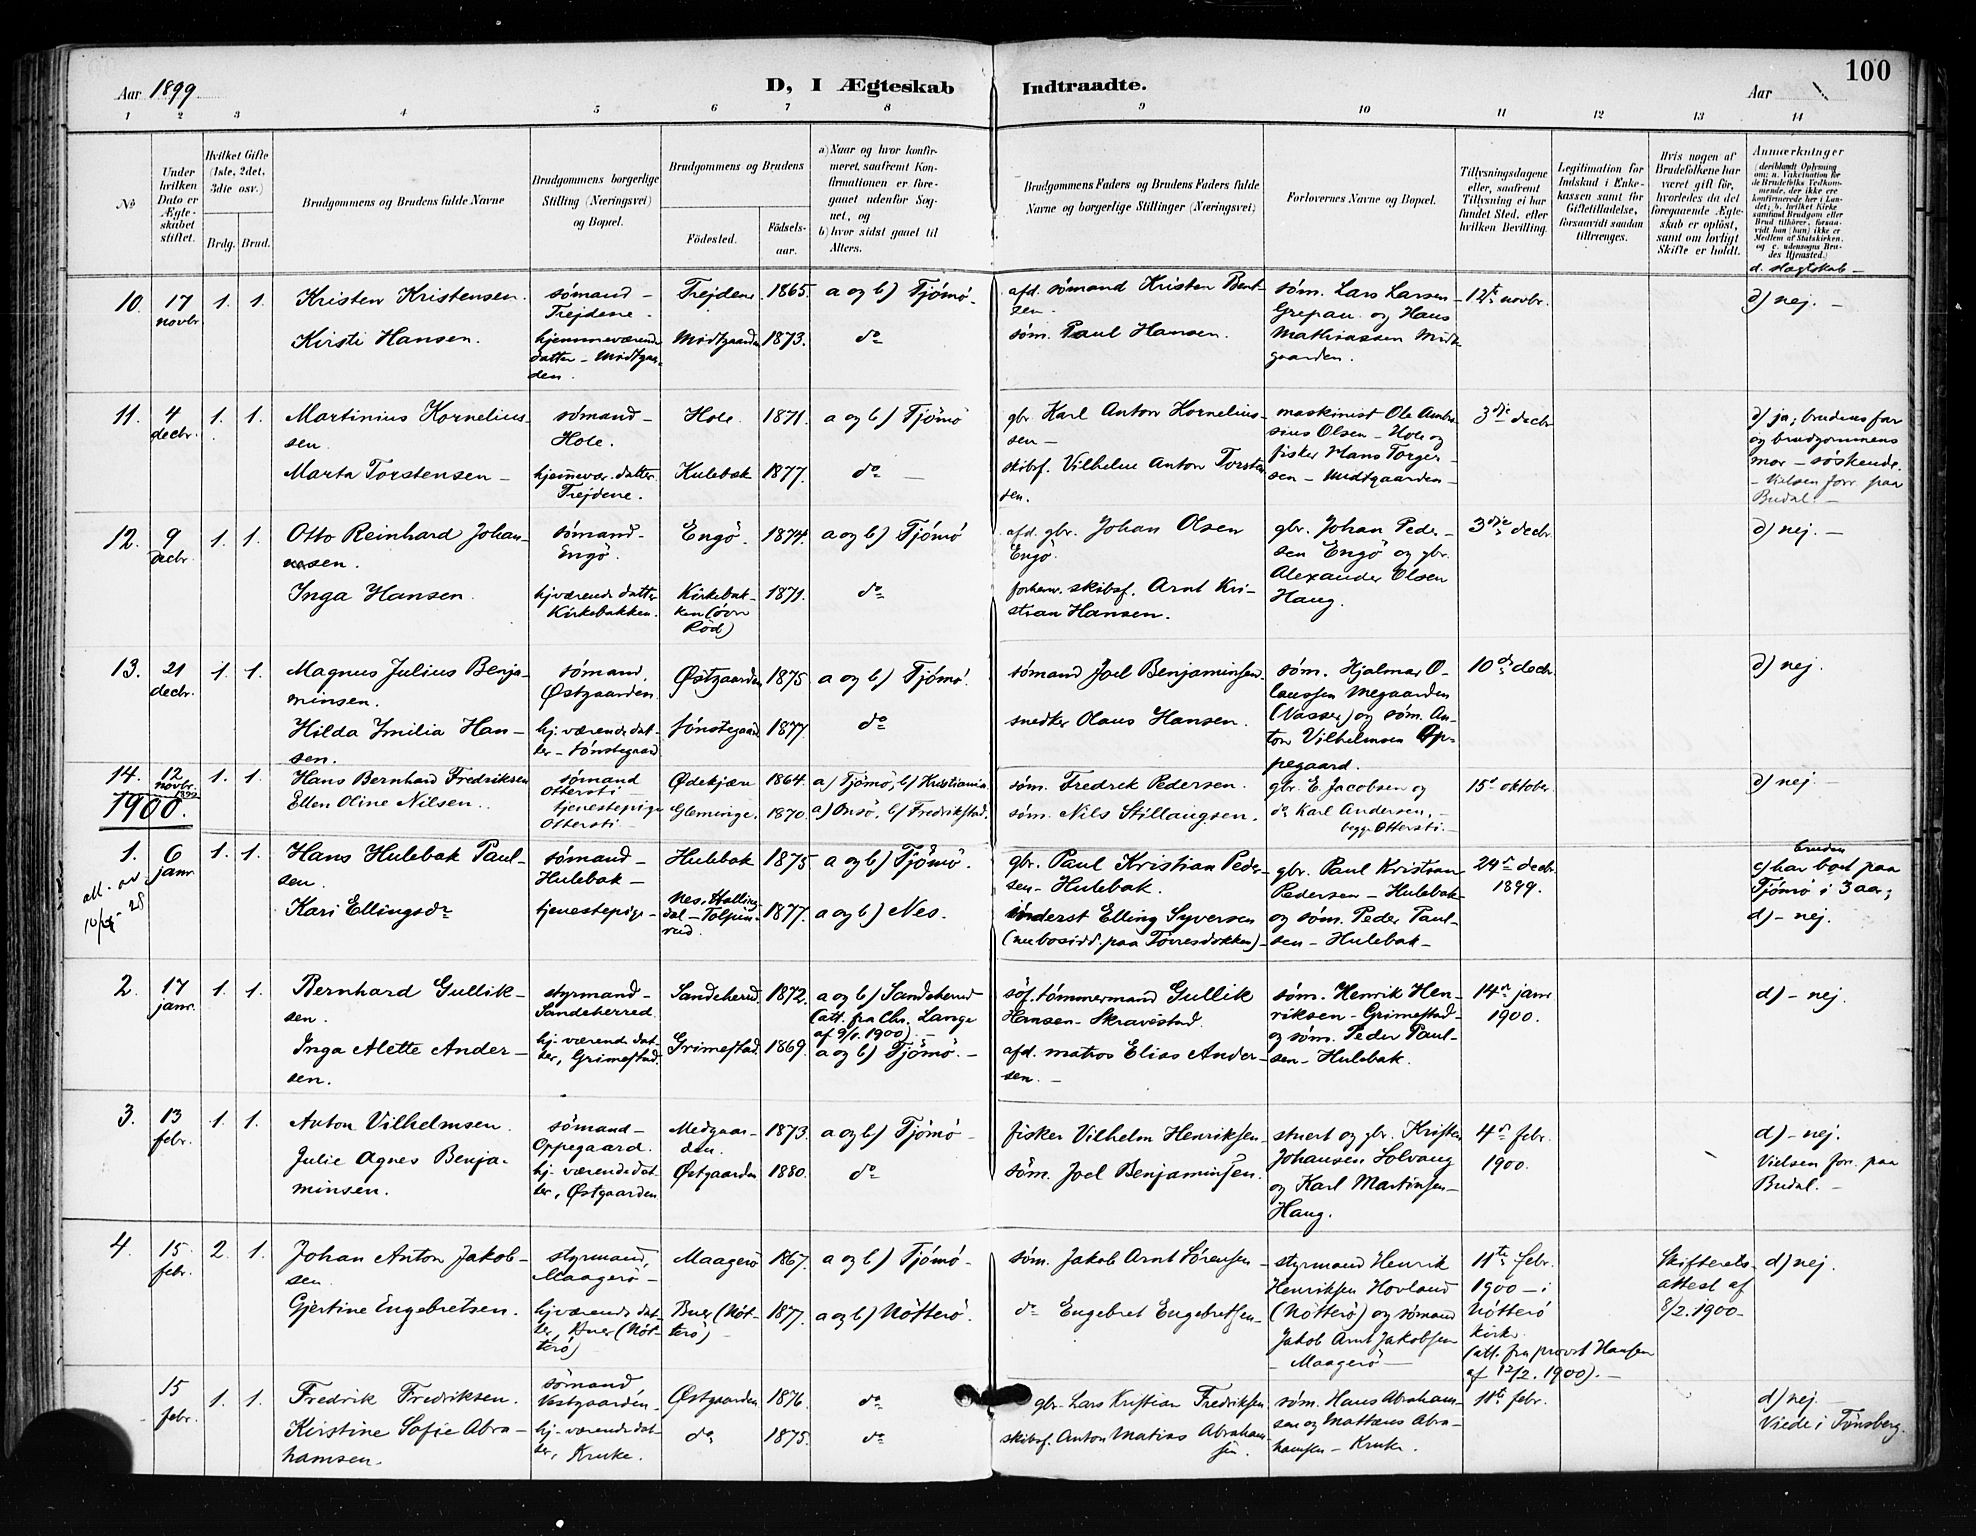 Aar 1899
D, I Ægteskab Indtraadte.
Aar
100
1 2 3 4 5 6 7 8 9 10 11 12 13 14
No
Under hvilken Dato er Ægteskabet stiftet.
Hvilket Gifte (1ste, 2det, 3die osv.)
Brdg. Brud.
Brudgommens og Brudens fulde Navne
Brudgommens borgerlige Stilling (Næringsvei) og Bopæl.
Brudgommens og Brudens
Fødested.
Fødsels-aar.
a) Naar og hvor konfirmeret, saafremt Konfirmationen er foregaaet udenfor Sognet, og
b) hvor sidst gaaet til Alters.
Brudgommens Faders og Brudens Faders fulde Navne og borgerlige Stillinger (Næringsvei)
Forlovernes Navne og Bopæl.
Tillysningsdagene eller, saafremt Tillysning ei har fundet Sted, efter hvilken Bevilling.
Legitimation for Indskud i Enkekassen samt for Giftetilladelse, forsaavidt saadan tiltrænges.
Hvis nogen af Brudefolkene har været gift før, hvorledes da det foregaaende Ægteskab er opløst, samt om lovligt Skifte er holdt.
Anmærkninger
d. slægtskab –
10. 17 novbr 1. 1.
Kristen Kristensen.
sømand – Trejdene.
Trejdene 1865. a og b) Tjømø.
afd. sømand Kristen Bentsen.
søm. Lars Larsen Grepan og Hans Mathiassen Midtgaarden.
12te novbr.
d) nej. –
Kirsti Hansen.
hjemmeværende datter – Midtgaarden.
Midtgaarden 1873. do
søm. Paul Hansen.
11. 4 decbr. 1. 1.
Martinius Kornelius-
sen.
sømand – Hole.
Hole 1871. a og b) Tjømø
gbr. Karl Anton Kornelius-
sen –
maskinist Ole Ambrosius Olsen – Hole og fisker Hans Torgersen – Midtgaarden –
3die decbr
d) ja; brudens far og brudgommens mor – søskende. – Vielsen forr. paa Budal. –
Marta Torstensen –
hjemmevær. datter. Trejdene.
Hulebak 1877. do
skibsf. Vilhelm Anton Torsten-
sen.
12. 9 decbr. 1. 1.
Otto Reinhard Johan-
nesen.
sømand. Engö.
Engö. 1874. a og b) Tjømø
afd. gbr. Johan Olsen Engö.
gbr. Johan Pedersen Engö og gbr. Alexander Olsen Haug.
3die decbr.
d) nej. –
Inga Hansen.
hjværende datter Kirkebakken.
Kirkebakken (övre Röd) 1871. do
forhenv. skibsf. Arnt Kri-
stian Hansen.
13. 21 decbr. 1. 1.
Magnus Julius Benja-
minsen.
sømand, Østgaarden.
Østgaarden 1875 a og b) Tjømø.
sømand Joel Benjaminsen.
søm. Hjalmar Olaussen Megaarden (Vasser) og søm. Anton Vilhelmsen Oppegaard.
10de decbr.
d) nej.
Hilda Emilia Han-
sen.
hj. værende datter – Sønstegaard
Sønstegaard 1877. do
snedker Olaus Hansen.
14. 12 novbr. 1899 1. 1.
Hans Bernhard Fredriksen
sømand Ottersti
Ødekjær 1864. a) Tjømø, b) Kristiania.
søm. Fredrik Pedersen.
gbr. E. Jacobsen og do Karl Andersen, – begge Ottersti. –
15de oktober.
d) nej. –
Ellen Oline Nilsen.
tjenestepige Ottersti –
Gleminge 1870. a) Onsö, b) Fredrikstad.
søm. Nils Stillaugsen.
1900.
1. 6 janr. 1. 1.
Hans Hulebak Paul-
sen.
sømand – Hulebak –
Hulebak 1875 a og b) Tjømø.
gbr. Paul Kristian Peder-
sen – Hulebak.
gbr. Paul Kristian Pedersen – Hulebak og søm. Peder Paulsen – Hulebak –
24de decbr 1899.
bruden c) har boet paa Tjømø i 3 aar; d) – nej.
Kari Ellingsdr
tjenestepige –
Nes, Hallingdal – 1877. a og b) Nes.
inderst Elling Syversen
2. 17 janr. 1. 1.
Bernhard Gullik-
sen.
styrmand – Sandeherred.
Sandeherred 1872. a og b) Sandeherred (att. fra Chr. Lange af 9/1. 1900). –
söf. tømmermand Gullik Hansen – Skravestad.
søm. Henrik Henriksen – Grimestad – og søm. Peder Paulsen – Hulebak.
14de janr 1900.
d) – nej.
Inga Alette Ander-
sen.
hj. værende datter, Grimestad.
Grimestad. 1869. a og b) Tjømø. –
afd. matros Elias Ander-
sen. –
3. 13 febr. 1. 1.
Anton Vilhelmsen.
sømand – Oppegaard.
Medgaarden. 1873. a og b) Tjømø –
fisker Vilhelm Henriksen –
stuert og gbr. Kristen Johansen Solvang og Karl Martinsen – Haug.
4de febr. 1900.
d) – nej. Vielsen forr. paa Budal. –
Julie Agnes Benja-
minsen.
hj. værende datter, Østgaarden
Østgaarden 1880. do
søm. Joel Benjaminsen.
4. 15 febr. 2. 1.
Johan Anton Jakob-
sen.
styrmand, Maagerö –
Maagerö 1867. a og b) Tjømø.
søm. Jakob Arnt Sörensen –
styrmand Henrik Henriksen Hovland (Nötterö) og sømand Jakob Arnt Jakobsen – Maagerö –
11te febr. 1900 – i Nötterö kirke. (att. fra provst Hansen af 12/2. 1900). –
Skifterets-attest af 8/2. 1900 –
d) nej.
Gjertine Engebretsen.
hjværende datter, Buer (Nötterö)
Buer (Nötterö) 1877. a og b) Nötterö.
do Engebret Engebretsen –
15 febr. 1. 1.
Fredrik Fredriksen.
sømand Vestgaarden.
Østgaarden 1876. do
gbr. Lars Kristian Fredriksen
søm. Hans Abrahamsen og Mattæus Abrahamsen – Kruke.
11te febr.
d) nej – Viede i Tønsberg.
Kirstine Sofie Abra-
hamsen.
hj. værende datter, Kruke.
do 1875. do
skibsf. Anton Matias Abraham-
sen.